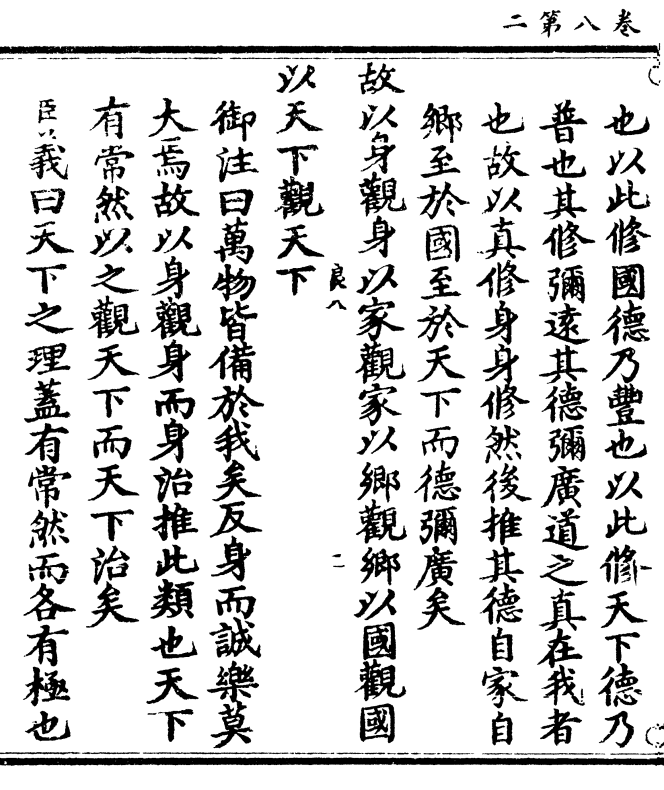 卷八第二
也以此修國德乃豐也以此修天下德乃
普也其修彌遠其德彌廣道之真在我者
也故以真修身身修然後推其德自家自
鄉至於國至於天下而德彌廣矣
故以身觀身以家觀家以鄉觀鄉以國觀國
良八
二
以天下觀天下
御注曰萬物皆備於我矣反身而誠樂莫
大焉故以身觀身而身治推此類也天下
有常然以之觀天下而天下治矣
臣義曰天下之理蓋有常然而各有極也